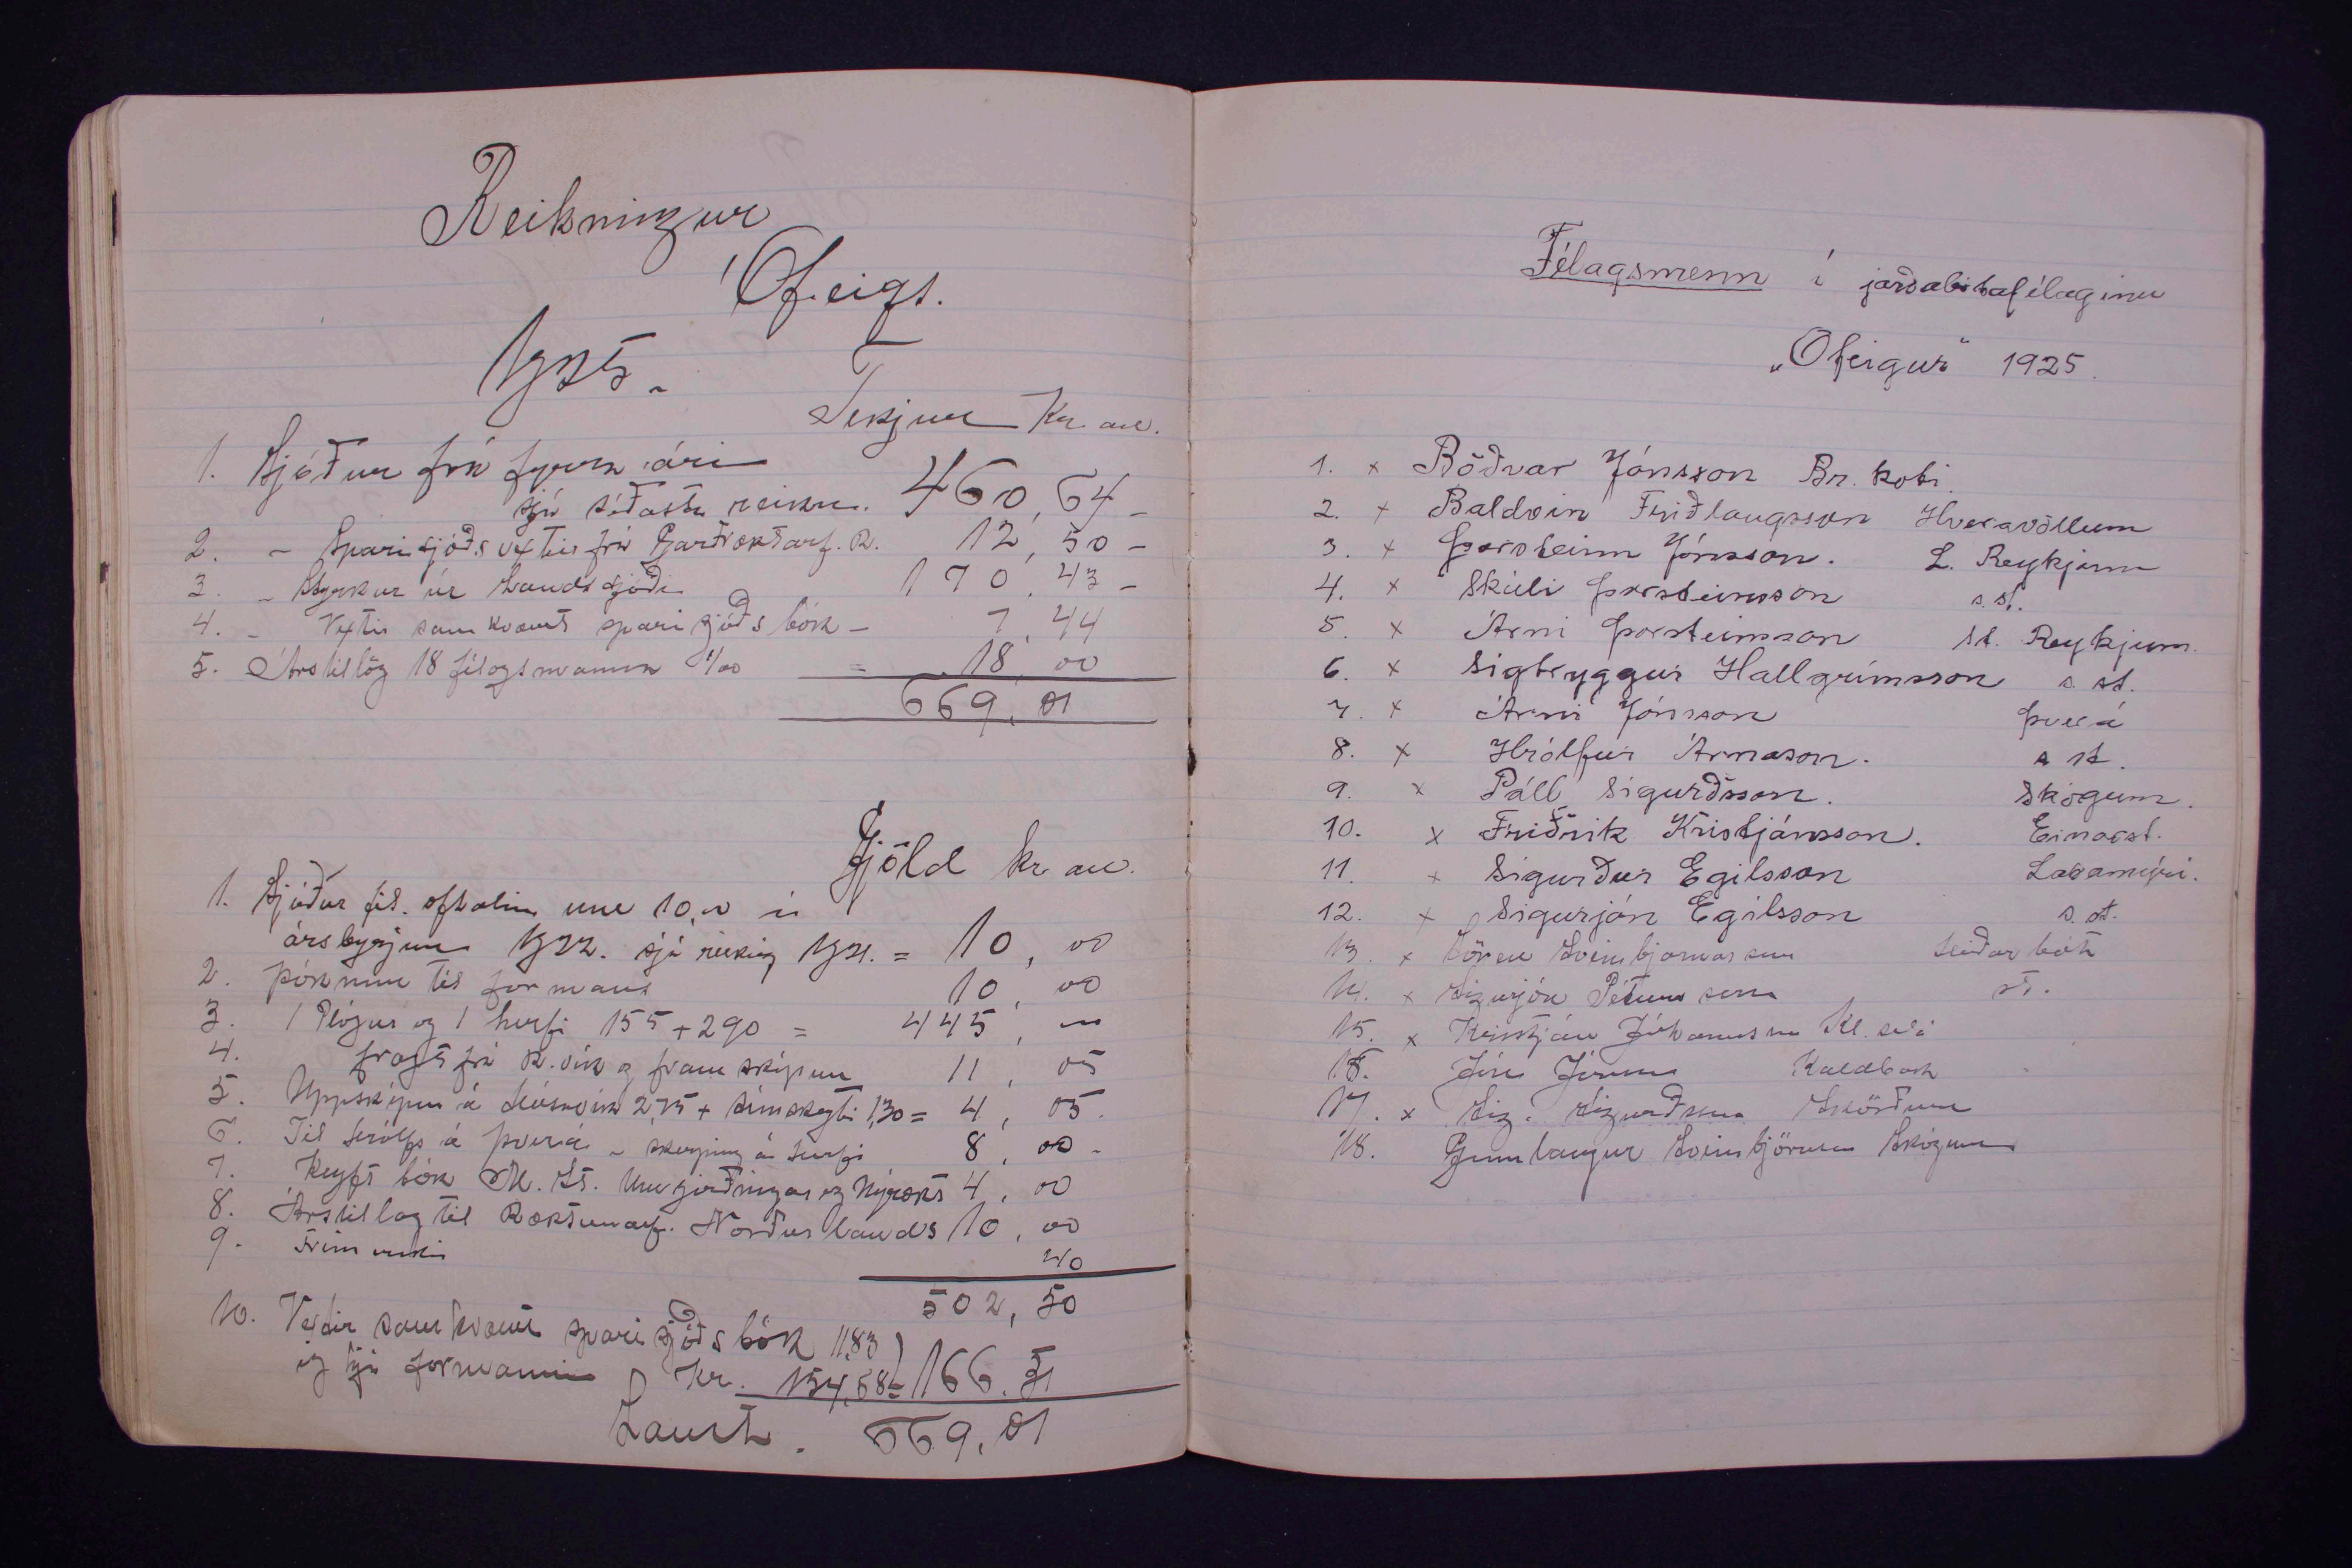 Reikningur
Ófeigs.
1925.
Tekjur Kr. au.
1. Sjóður frá fyrra ári
sjá síðasta reikn. 460,64 -
2. - Sparisjóðs vextir frá Garðræktarf. R. 12,50 -
3. - Styrkur úr Landssjóði 170,43 -
4. - Vextir samkvæmt sparisjóðs bók - 7,44
5. Árstillög 18 félagsmanna 1/00 = 18,00
669,01
Gjöld kr. au.
1. Sjóður oftalinn um 10,00 í
ársbyrjun 1922. sjá reikning 1921. = 10,00
2. Þóknun til formans 10,00
3. 1 Plógur og 1 herfi 155+290 = 445, "
4. fragt frá R.vík og framskipun 11,05
5. Uppskipun á Húsavík 2,75 + símskeyti 1,30 = 4,05.
6. Til Hrólfs á Þverá - skerping á herfi 8,00 -
7. Keypt bók M. St. Um girðingar og Nýrækt 4,00
8. Árstillag til Ræktunarf. Norðurlands 10,00
9. Frímerki 40
502,50
10. Vextir samkvæmt sparisjóðs bók 11,83
og hjá formanni Kr. 154,68 = 166.51
Samt. 669,01
Félagsmenn í jarðabótafélaginu
„Ofeigur" 1925.
1. x Böðvar Jónsson Br. koti.
2. x Baldvin Friðlaugsson Hveravöllum
3. x Þorsteinn Jónsson. L. Reykjum
4. x Skúli Þorsteinsson s.st.
5. x Árni Þorsteinsson St. Reykjum.
6. x Sigtryggur Hallgrímsson s. st.
7. x Árni Jónsson Þverá
8. x Hrólfur Árnason. s st.
9. x Páll Sigurðsson. Skógum.
10. x Friðrik Kristjánsson. Einarst.
11. x Sigurður Egilsson Laxamýri.
12. x Sigurjón Egilsson s. st.
13. x Sören Sveinbjarnarson Heiðarbót
14. x Sigurjón Pétursson st.
15. x Kristján Jóhannsson Kl. seli
16. Jón Jónsson Kaldbak
17. x Sig. Sigurðsson Skörðum
18. Gunnlaugur Sveinbjörnsson Skógum